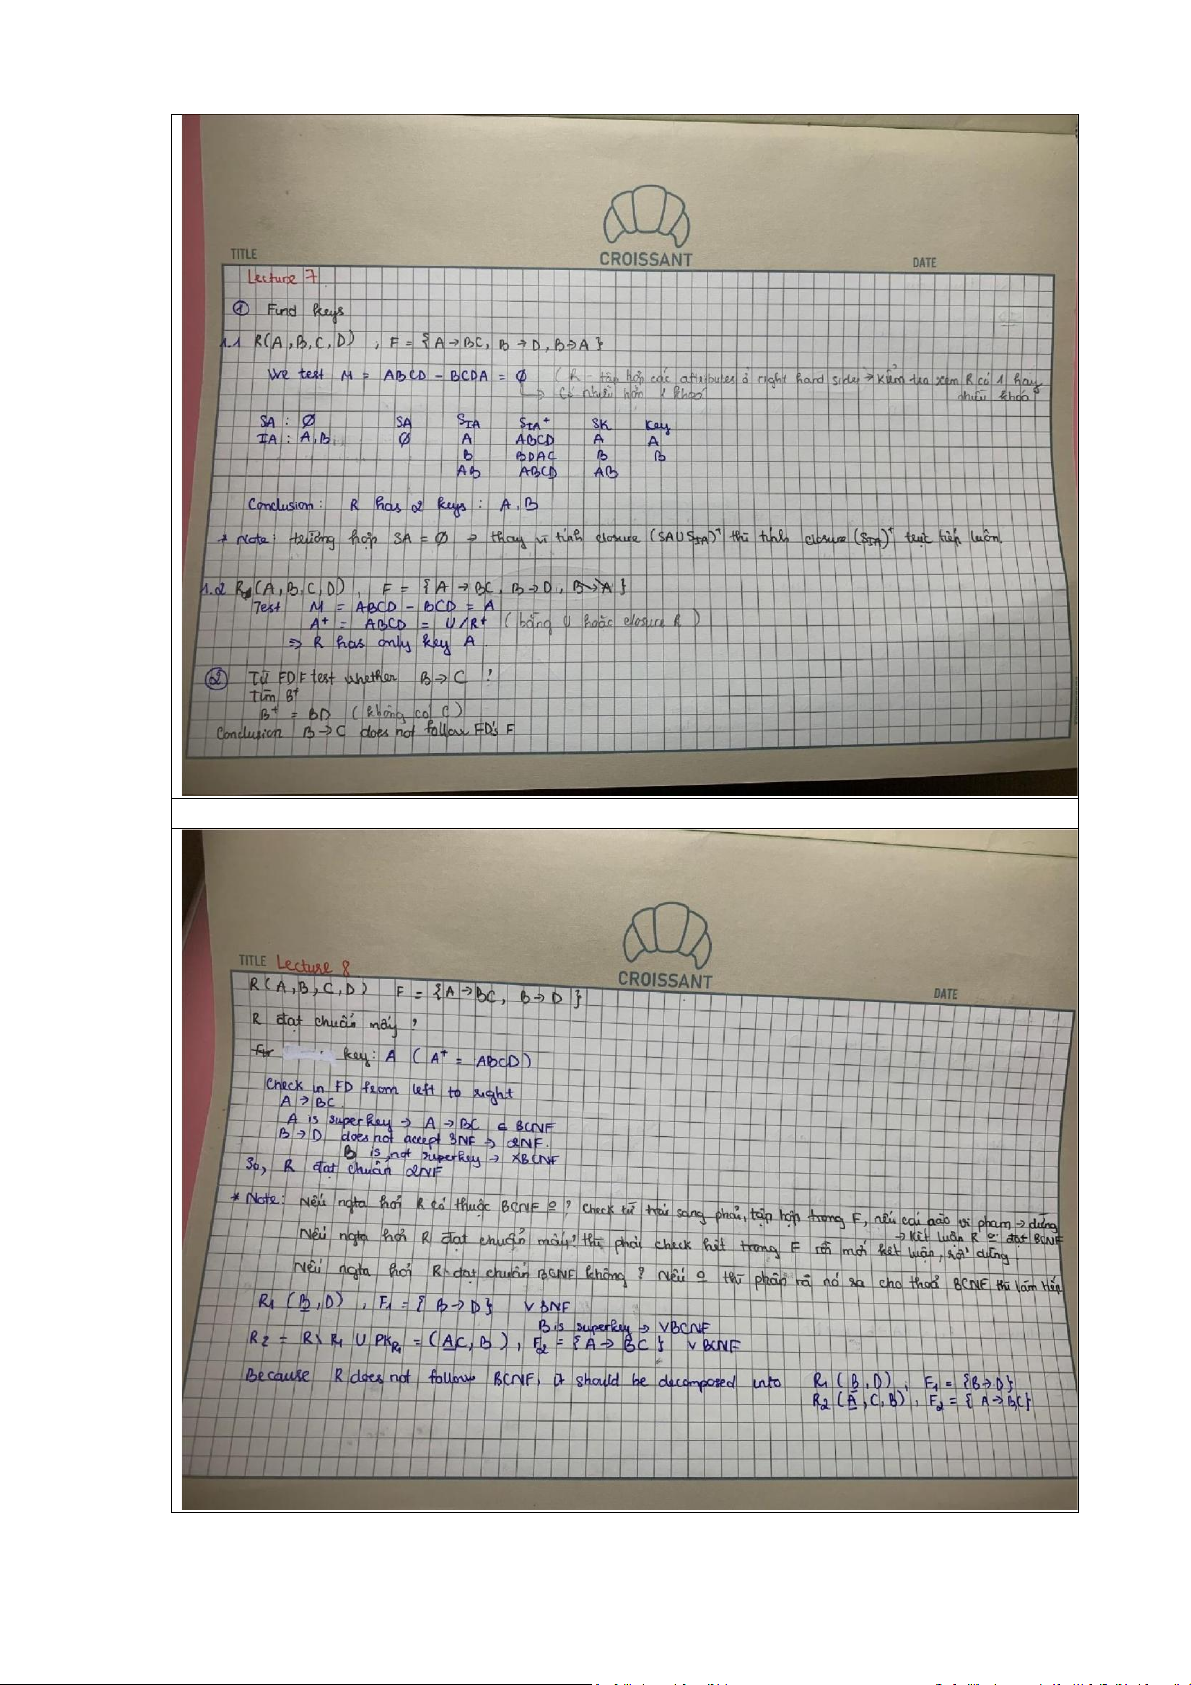 CROISSANT
TITLE
DATE
Lecture 7
① Find keys
1.1 R(A,B,C,D) , F = {A→BC, B→D, B→A}
We test M = ABCD - BCDA = ∅ (R - tập hợp các attributes ở right hard side → kiểm tra xem R có 1 hay nhiều khóa
↳ có nhiều hơn 1 khoá
SA : ∅ SA SIA SIA⁺ SK Key
IA : A,B ∅ A ABCD A A
B BDAC B B
AB ABCD AB
Conclusion: R has 2 keys : A, B
* Note: trường hợp SA = ∅ → thay vì tính closure (SA∪SIA)⁺ thì tính closure (SIA)⁺ trực tiếp luôn.
1.2 R(A,B,C,D) , F = {A→BC, B→D, B↛A}
Test M = ABCD - BCD = A
A⁺ = ABCD = U/R⁺ (bằng U hoặc closure R)
⇒ R has only key A
② Từ FD F test whether B→C ?
Tìm B⁺
B⁺ = BD (không có C)
Conclusion B→C does not follow FD's F
CROISSANT
TITLE Lecture 8
DATE
R(A,B,C,D) F = {A→BC, B→D}
R đạt chuẩn mấy ?
key: A (A⁺ = ABCD)
Check in FD from left to right
A→BC
A is superkey → A→BC ∈ BCNF
B→D does not accept 3NF → 2NF.
B is not superkey → XBCNF
So, R đạt chuẩn 2NF
* Note: Nếu ngta hỏi R có thuộc BCNF o ? check từ trái sang phải, tập hợp trong F, nếu cái nào vi phạm → dừng
→ kết luận R o đạt BCNF
Nếu ngta hỏi R đạt chuẩn mấy? thì phải check hết trong F rồi mới kết luận, rồi dừng
Nếu ngta hỏi R đạt chuẩn BCNF không ? Nếu o thì phân rã nó ra cho thoả BCNF thì làm tiếp
R1 (B,D) , F1 = {B→D} ∨ 3NF
B is superkey → ∨BCNF
R2 = R\R1 ∪ PKR1 = (AC, B) , F2 = {A→BC} ∨ BCNF
Because R does not follow BCNF, it should be decomposed into R1 (B,D) , F1 = {B→D}
R2 (A,C,B) , F2 = {A→BC}